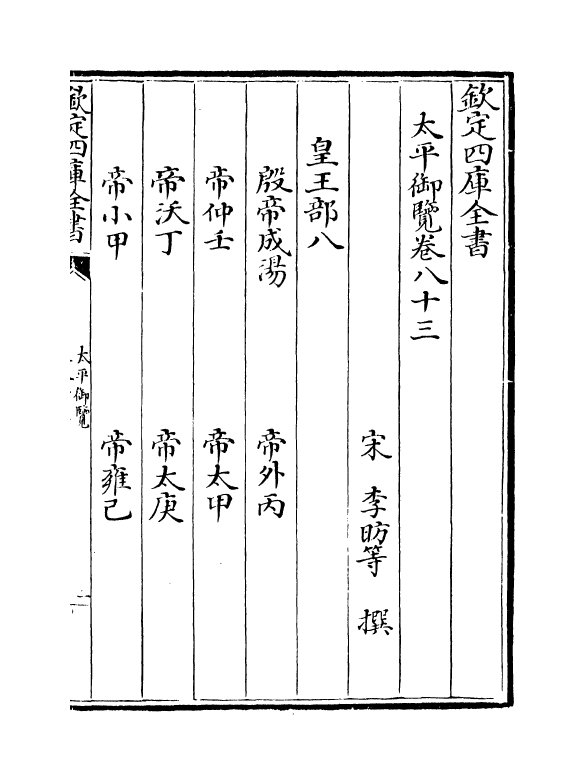 欽定四庫全書
太平御覽卷八十三
宋 李昉等 撰
皇王部八
殷帝成湯 帝外丙
帝仲壬 帝太甲
帝沃丁 帝太庚
帝小甲 帝雍己
欽定四庫全書
太平御覽